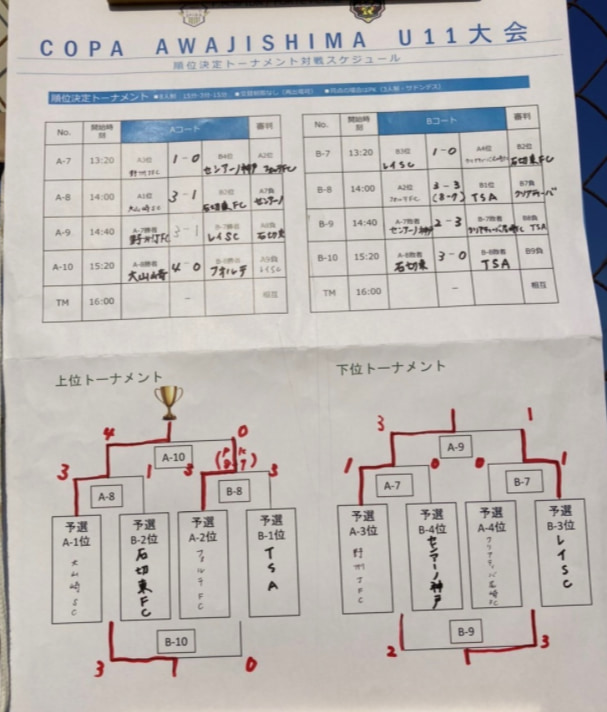 COPA AWAJISHIMA U11大会
順位決定トーナメント対戦スケジュール
順位決定トーナメント ●8人制 15分-3分-15分 ●交替制限なし(再出場可) ●同点の場合はPK(3人制・サドンデス)
No. 開始時刻 Aコート 審判
A-7 13:20 A3位 野洲JFC 1-0 B4位 センアーノ神戸 A2位 フォルテFC
A-8 14:00 A1位 大山崎SC 3-1 B2位 石切東FC A7負 センアーノ
A-9 14:40 A-7勝者 野洲JFC 3-1 B-7勝者 レイSC A8負 石切東
A-10 15:20 A-8勝者 大山崎 4-0 B-8勝者 フォルテ A9負 レイSC
TM 16:00 - 相互
No. 開始時刻 Bコート 審判
B-7 13:20 B3位 レイSC 1-0 A4位 B2位 石切東FC
B-8 14:00 A2位 フォルテFC 3-3 (8-7) B1位 TSA B7負 クリアティーバ
B-9 14:40 A-7敗者 センアーノ神戸 2-3 B-7敗者 B8負 TSA
B-10 15:20 A-8敗者 石切東 3-0 B-8敗者 TSA B9負
TM 16:00 - 相互
上位トーナメント
4 0
A-10
3 1 3 (PK 8 7) 3
A-8 B-8
予選 A-1位 大山崎SC
予選 B-2位 石切東FC
予選 A-2位 フォルテFC
予選 B-1位 TSA
B-10
3 0
下位トーナメント
3 1
A-9
1 0 0 1
A-7 B-7
予選 A-3位 野洲JFC
予選 B-4位 センアーノ神戸
予選 A-4位
予選 B-3位 レイSC
B-9
2 3